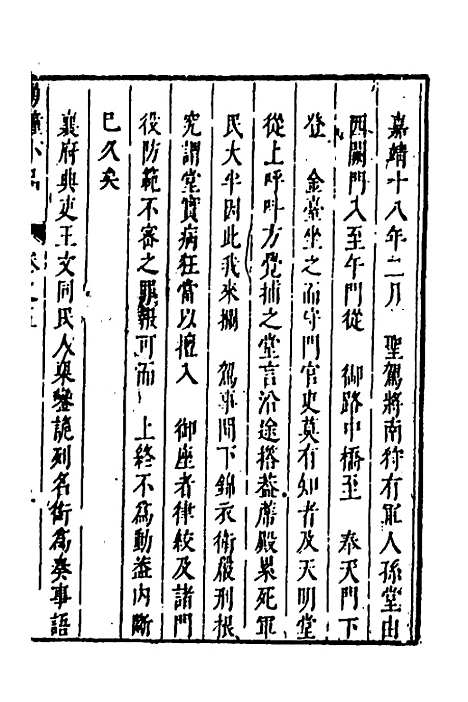 嘉靖十八年二月　聖駕將南狩有軍人孫堂由
西闕門入至午門從　御路中橋至　奉天門下
登　金臺坐之而守門官吏莫有知者及天明堂
從上呼叫方覺捕之堂言沿途搭葢蓆殿累死軍
民大半因此我來攔　駕事聞下錦衣衛嚴刑根
究謂堂實病狂當以擅入　御座者律絞及諸門
役防範不審之罪報可而　上終不為動葢内斷
已久矣
襄府典吏王文同民人梁鑾詭列名銜為奏事語
小品
卷之五